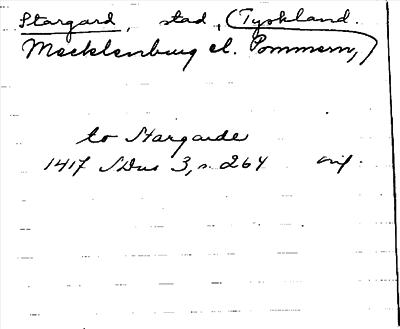 Stargard, stad, (Tyskland.
Mecklenburg el. Pommern,)
to Stargarde
1417 SDns 3, s. 264 orig.